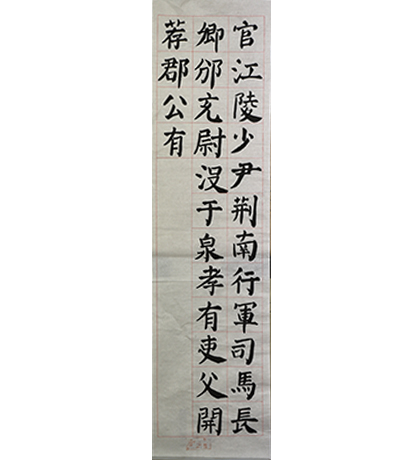 官江陵少尹荆南行軍司馬長
卿邠充尉没于泉孝有吏父開
荐郡公有